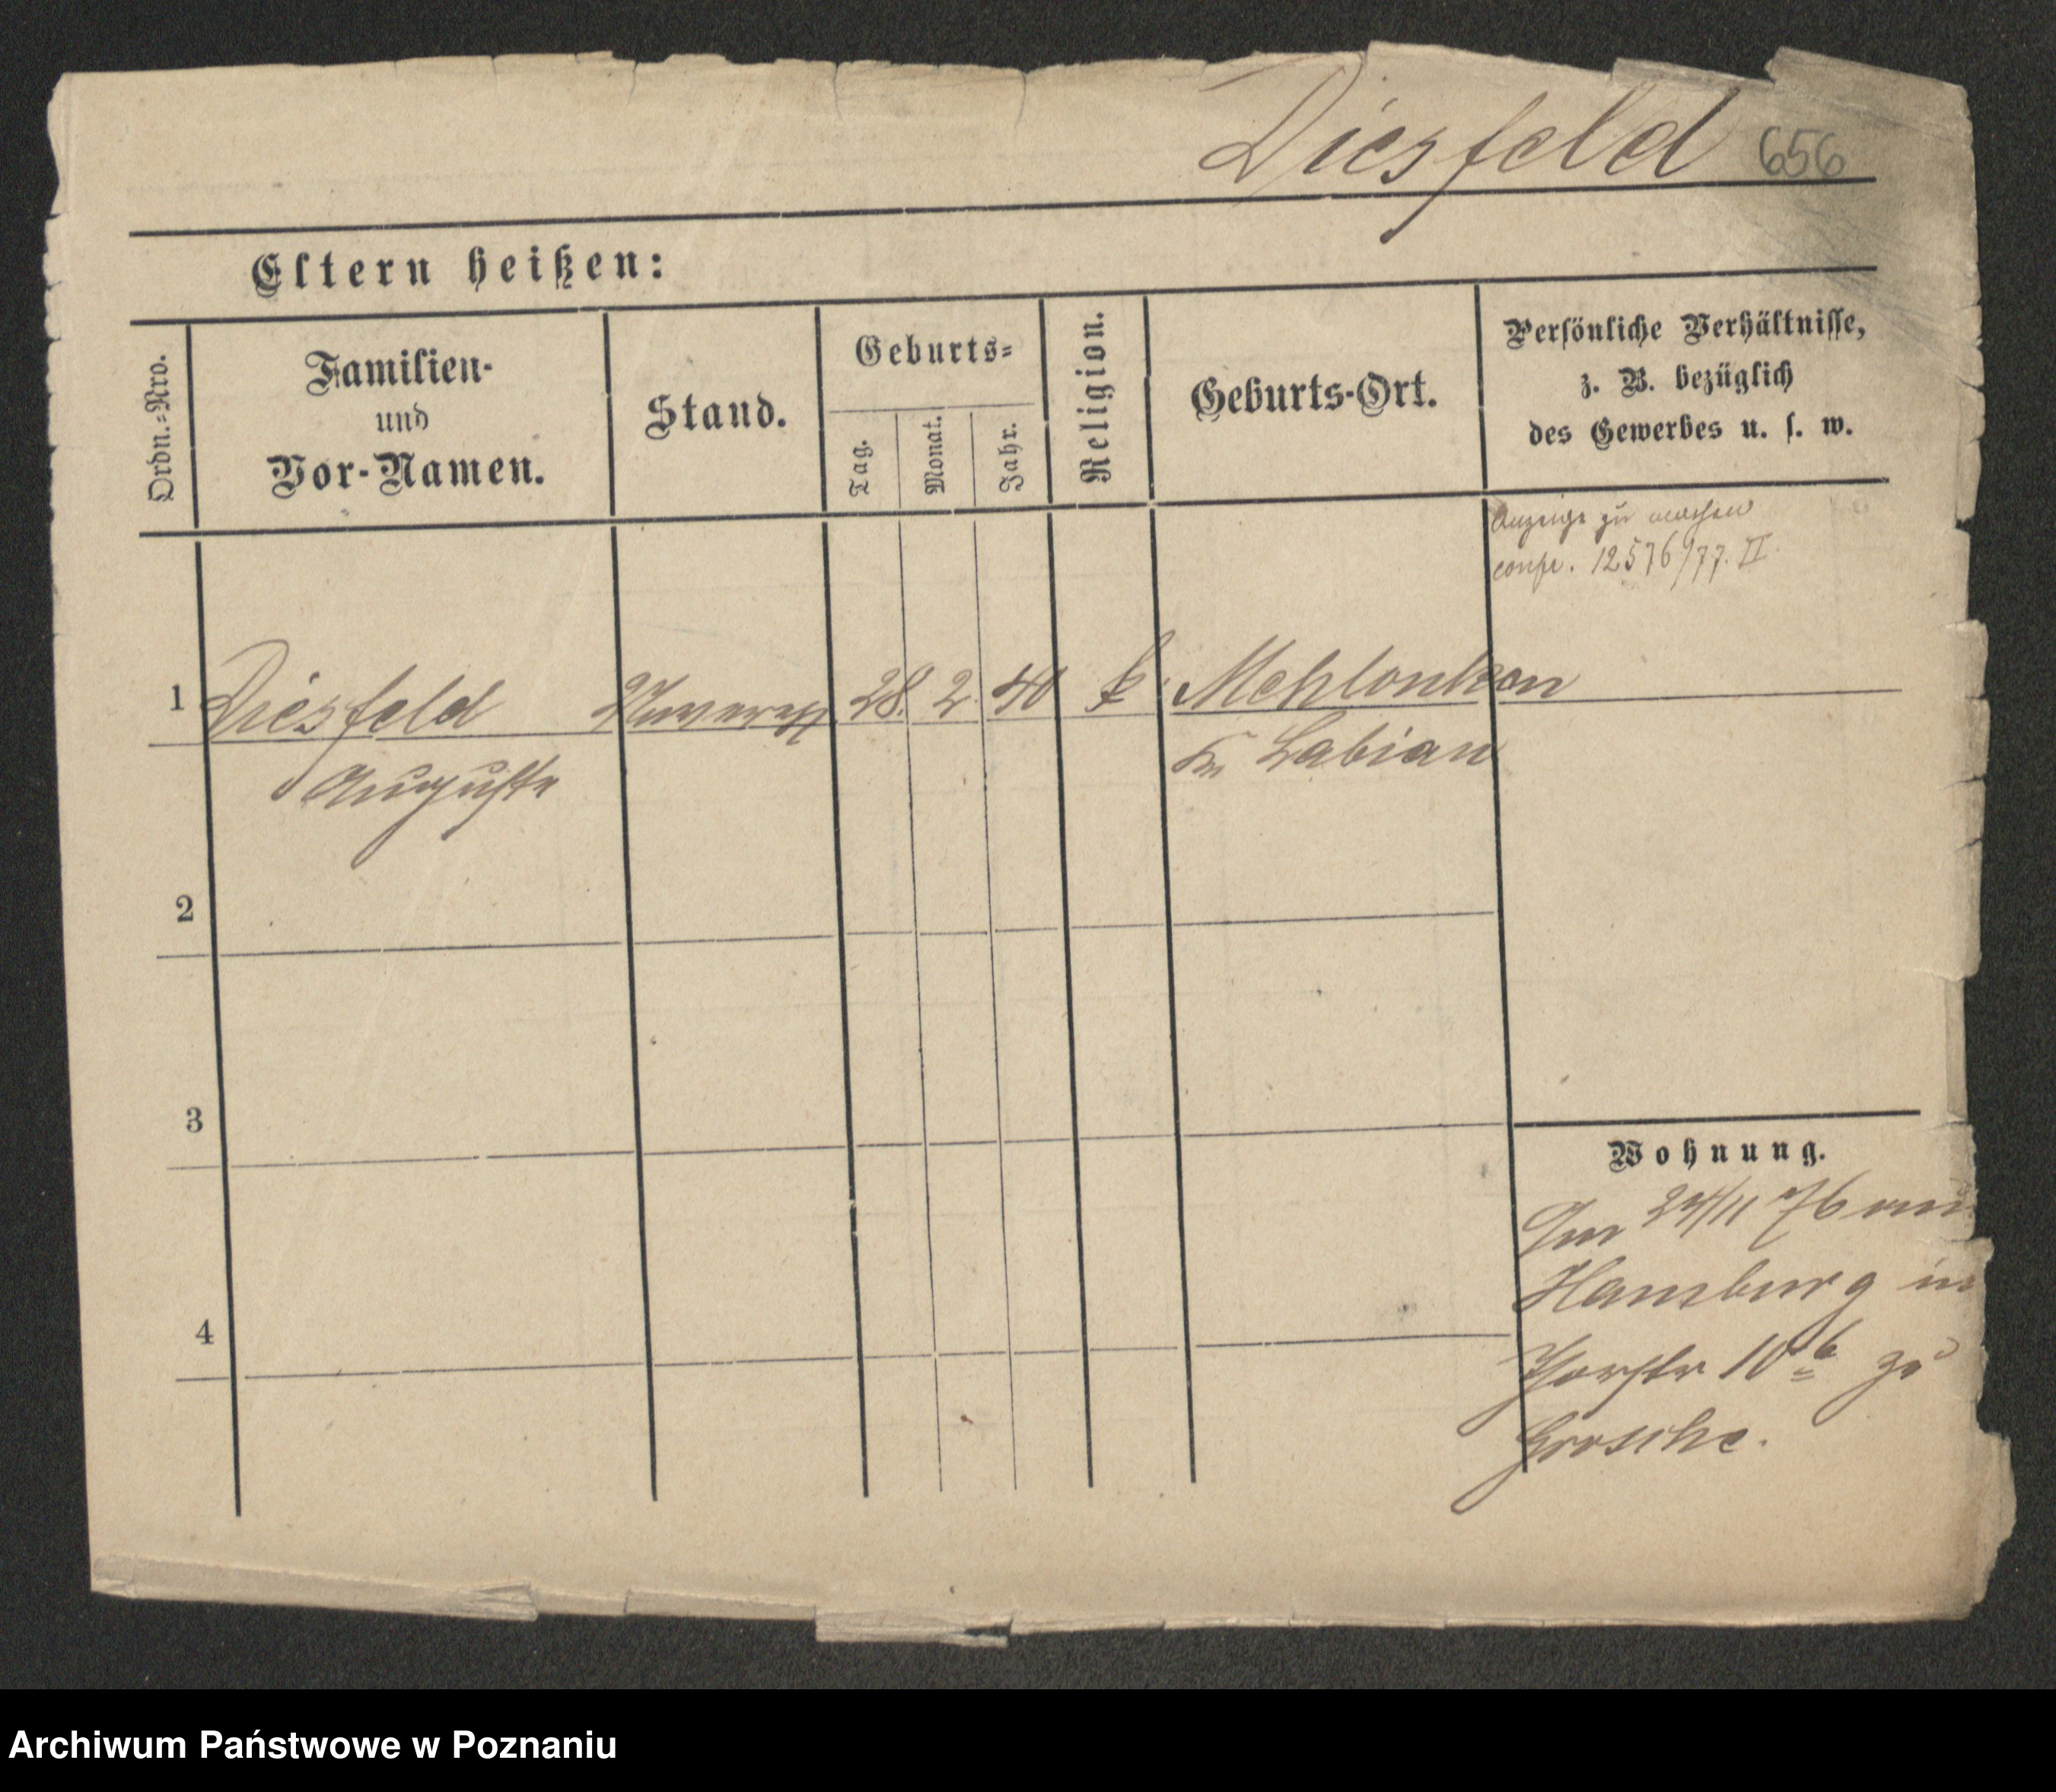 Diesfeld 656
Eltern heißen:
Ordn.-Nro.
Familien-
und
Vor-Namen.
Stand.
Geburts-
Tag.
Monat.
Jahr.
Religion.
Geburts-Ort.
Persönliche Verhältnisse,
z. B. bezüglich
des Gewerbes u. s. w.
Anzeige zu machen
confr. 12576/77. II
1 Diesfeld 28. 2. 40 k. Mehlonken
Auguste Kr. Labiau
2
3
4
Wohnung.
Am 24/11 76 von
Hamburg in
10 b zu
Grosche.
Archiwum Państwowe w Poznaniu